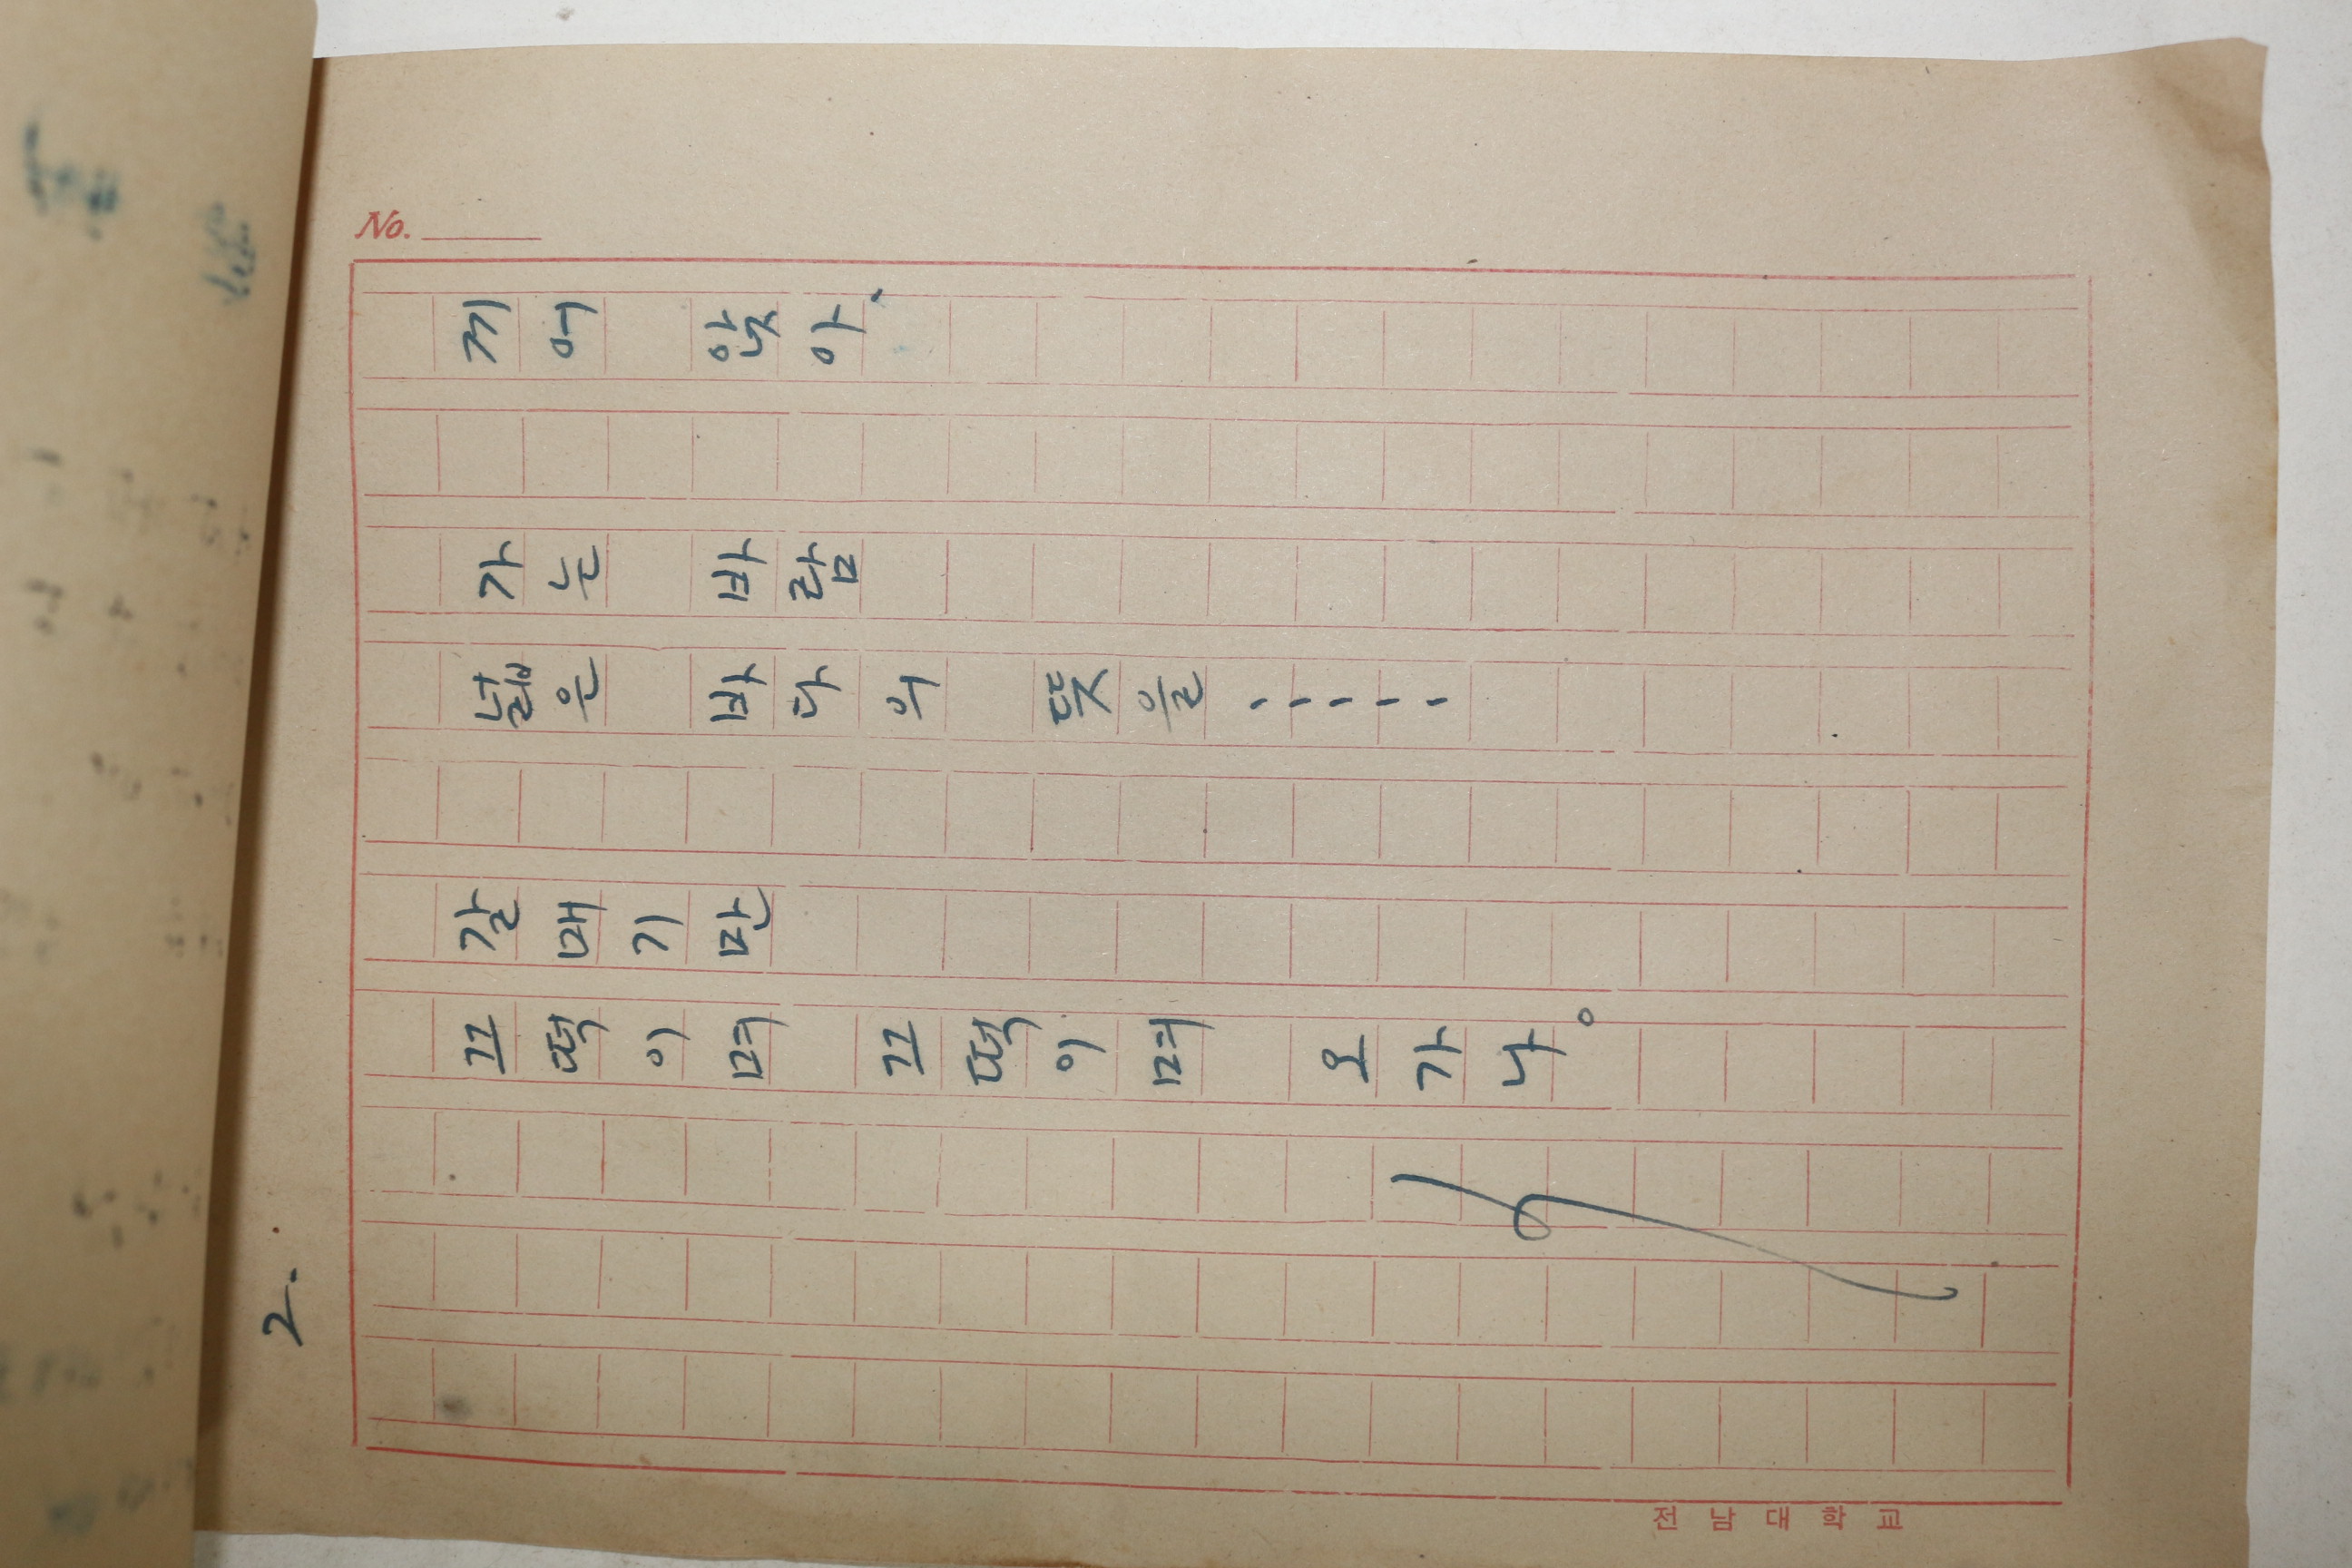 No.
끼어 앉아、
가는 바람
넓은 바다의 뜻을·····
갈매기만
끄떡이며 끄떡이며 오가나。
2.
전남대학교